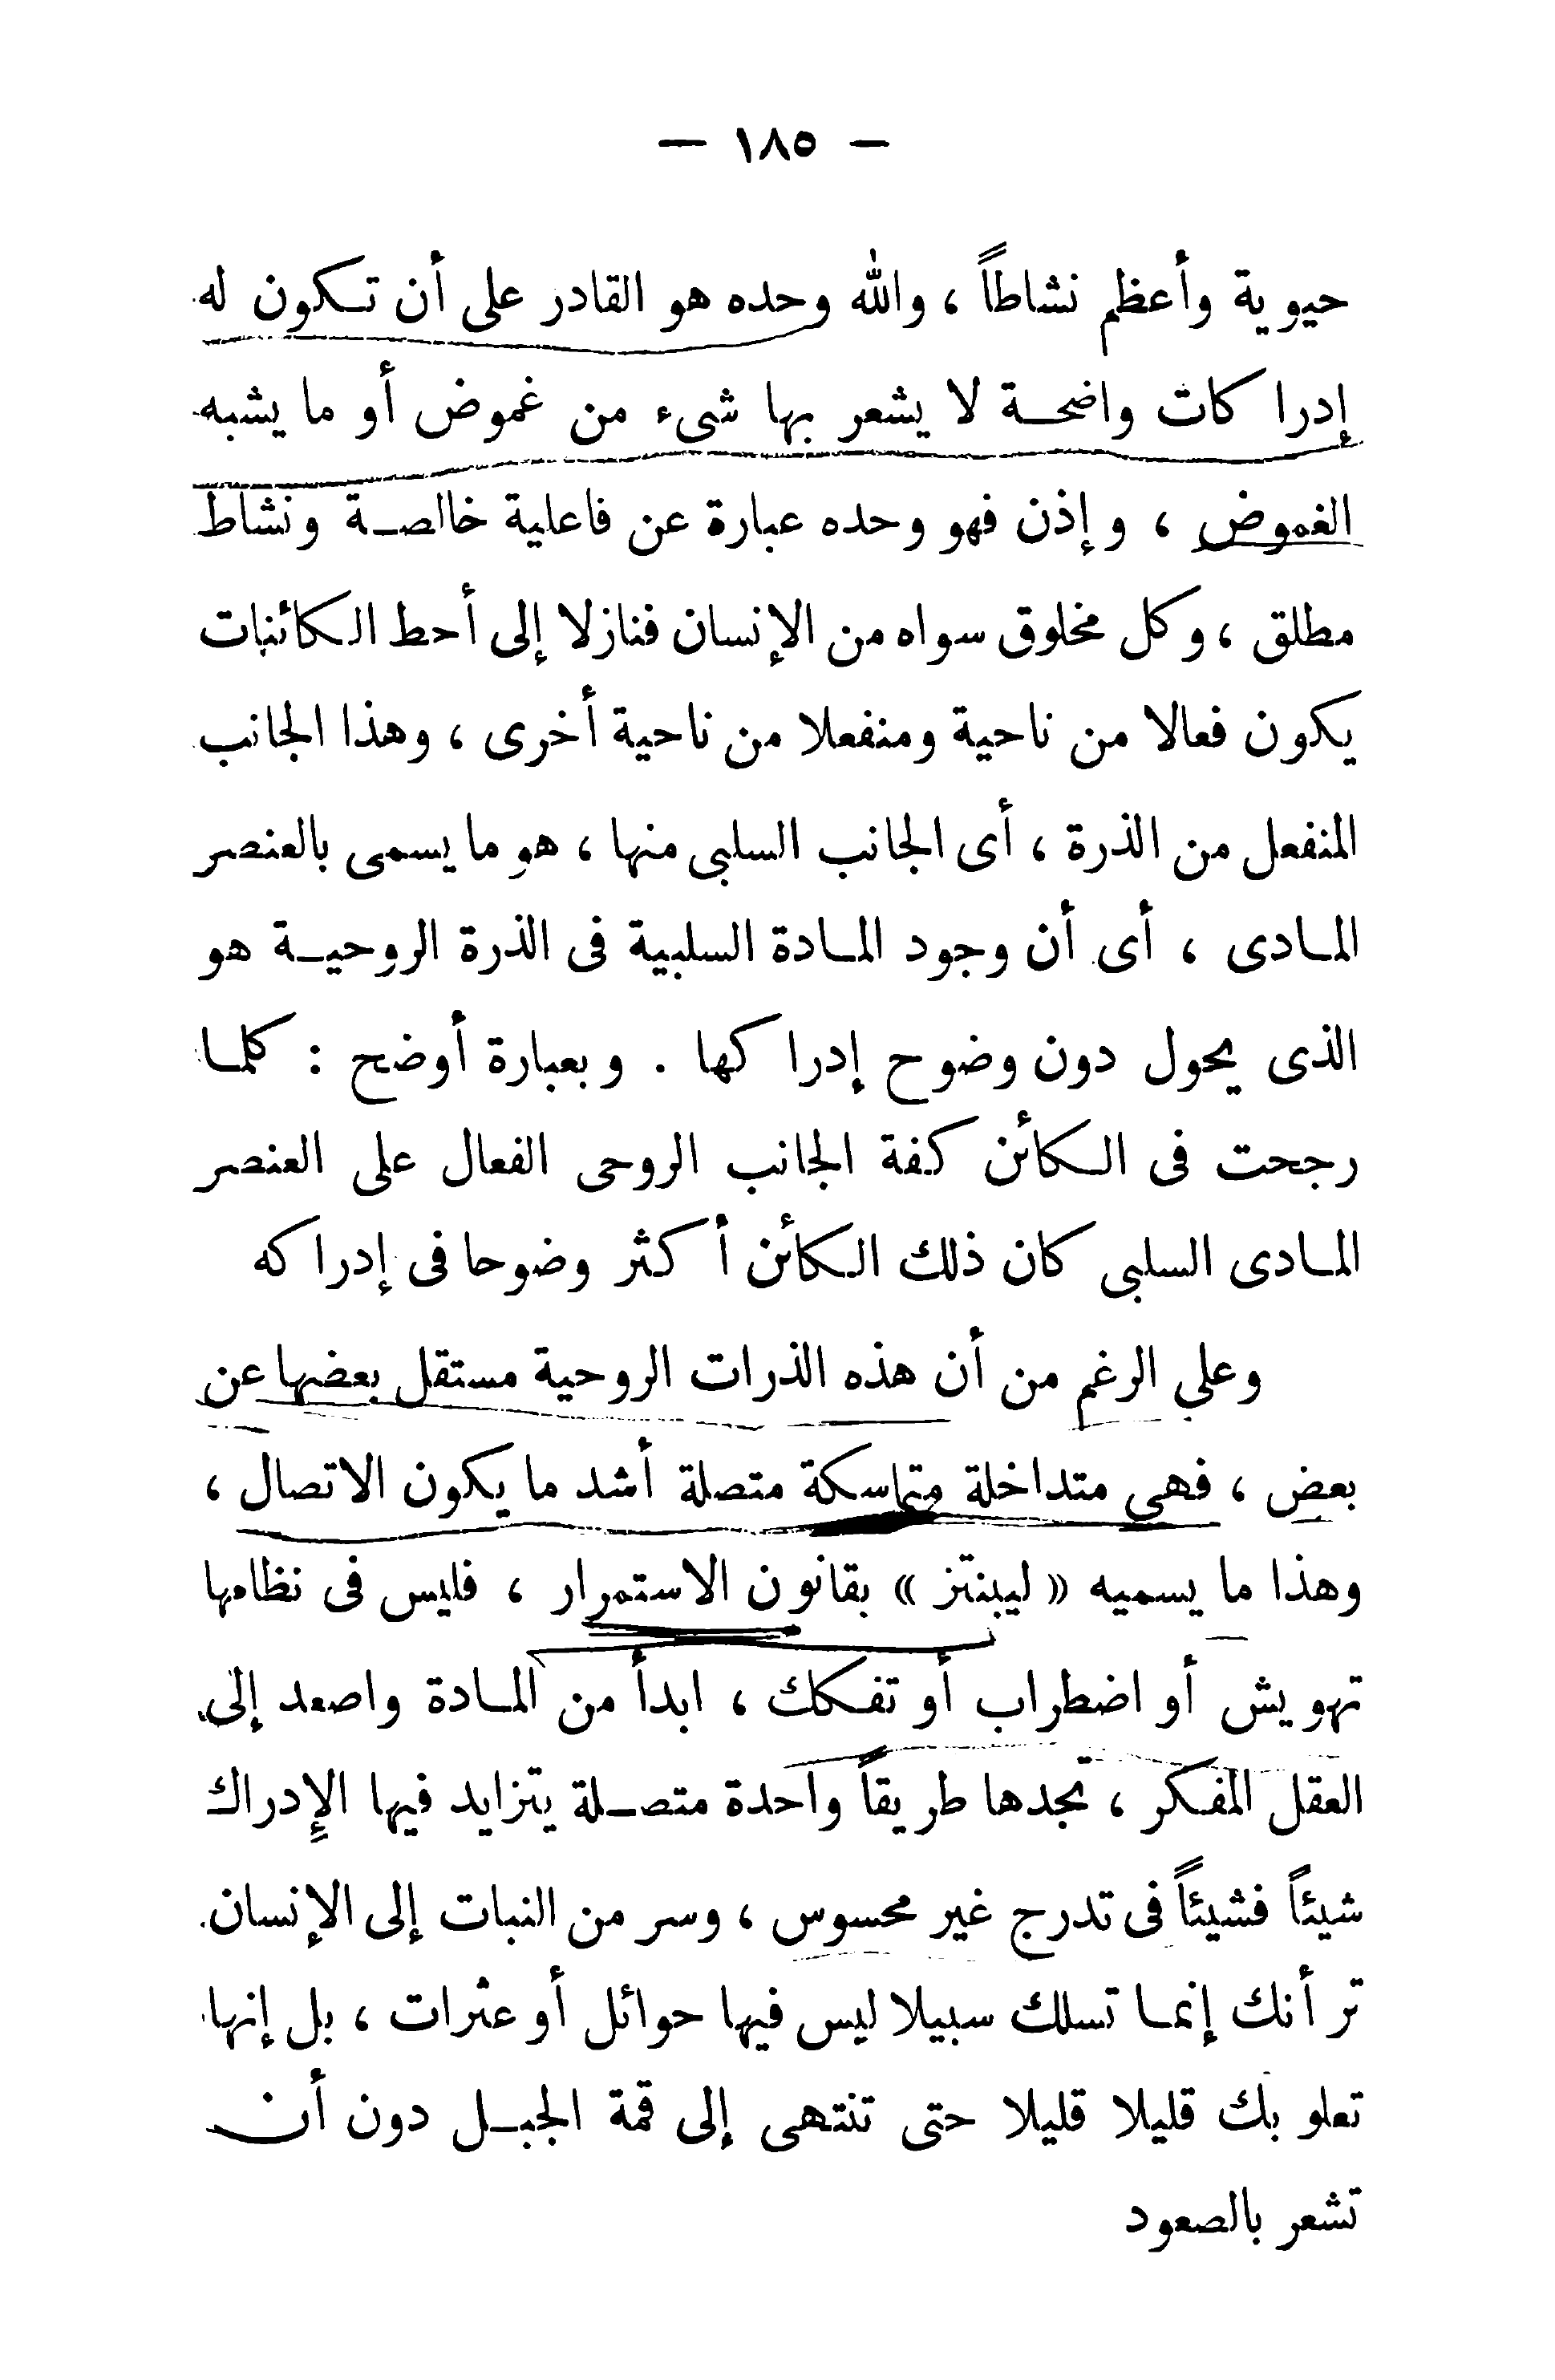 — ١٨٥ —
حيوية وأعظم نشاطاً ، والله وحده هو القادر على أن تكون له
إدراكات واضحة لا يشعر بها شىء من غموض أو ما يشبه
الغموض ، وإذن فهو وحده عبارة عن فاعلية خالصة ونشاط
مطلق ، وكل مخلوق سواه من الإنسان فنازلا إلى أحط الكائنات
يكون فعالا من ناحية ومنفعلا من ناحية أخرى ، وهذا الجانب
المنفعل من الذرة ، أى الجانب السلبى منها ، هو ما يسمى بالعنصر
المادى ، أى أن وجود المادة السلبية فى الذرة الروحية هو
الذى يحول دون وضوح إدراكها . وبعبارة أوضح : كلما
رجحت فى الكائن كفة الجانب الروحى الفعال على العنصر
المادى السلبى كان ذلك الكائن أكثر وضوحا فى إدراكه
وعلى الرغم من أن هذه الذرات الروحية مستقل بعضها عن
بعض ، فهى متداخلة متماسكة متصلة أشد ما يكون الاتصال ،
وهذا ما يسميه « ليبنتز » بقانون الاستمرار ، فليس فى نظامها
تهويش أو اضطراب أو تفكك ، ابدأ من المادة واصعد إلى
العقل المفكر ، تجدها طريقاً واحدة متصلة يتزايد فيها الإِدراك
شيئاً فشيئاً فى تدرج غير محسوس ، وسر من النبات إلى الإنسان
تر أنك إنما تسلك سبيلا ليس فيها حوائل أو عثرات ، بل إنها
تعلو بك قليلا قليلا حتى تنتهى إلى قمة الجبل دون أن
تشعر بالصعود